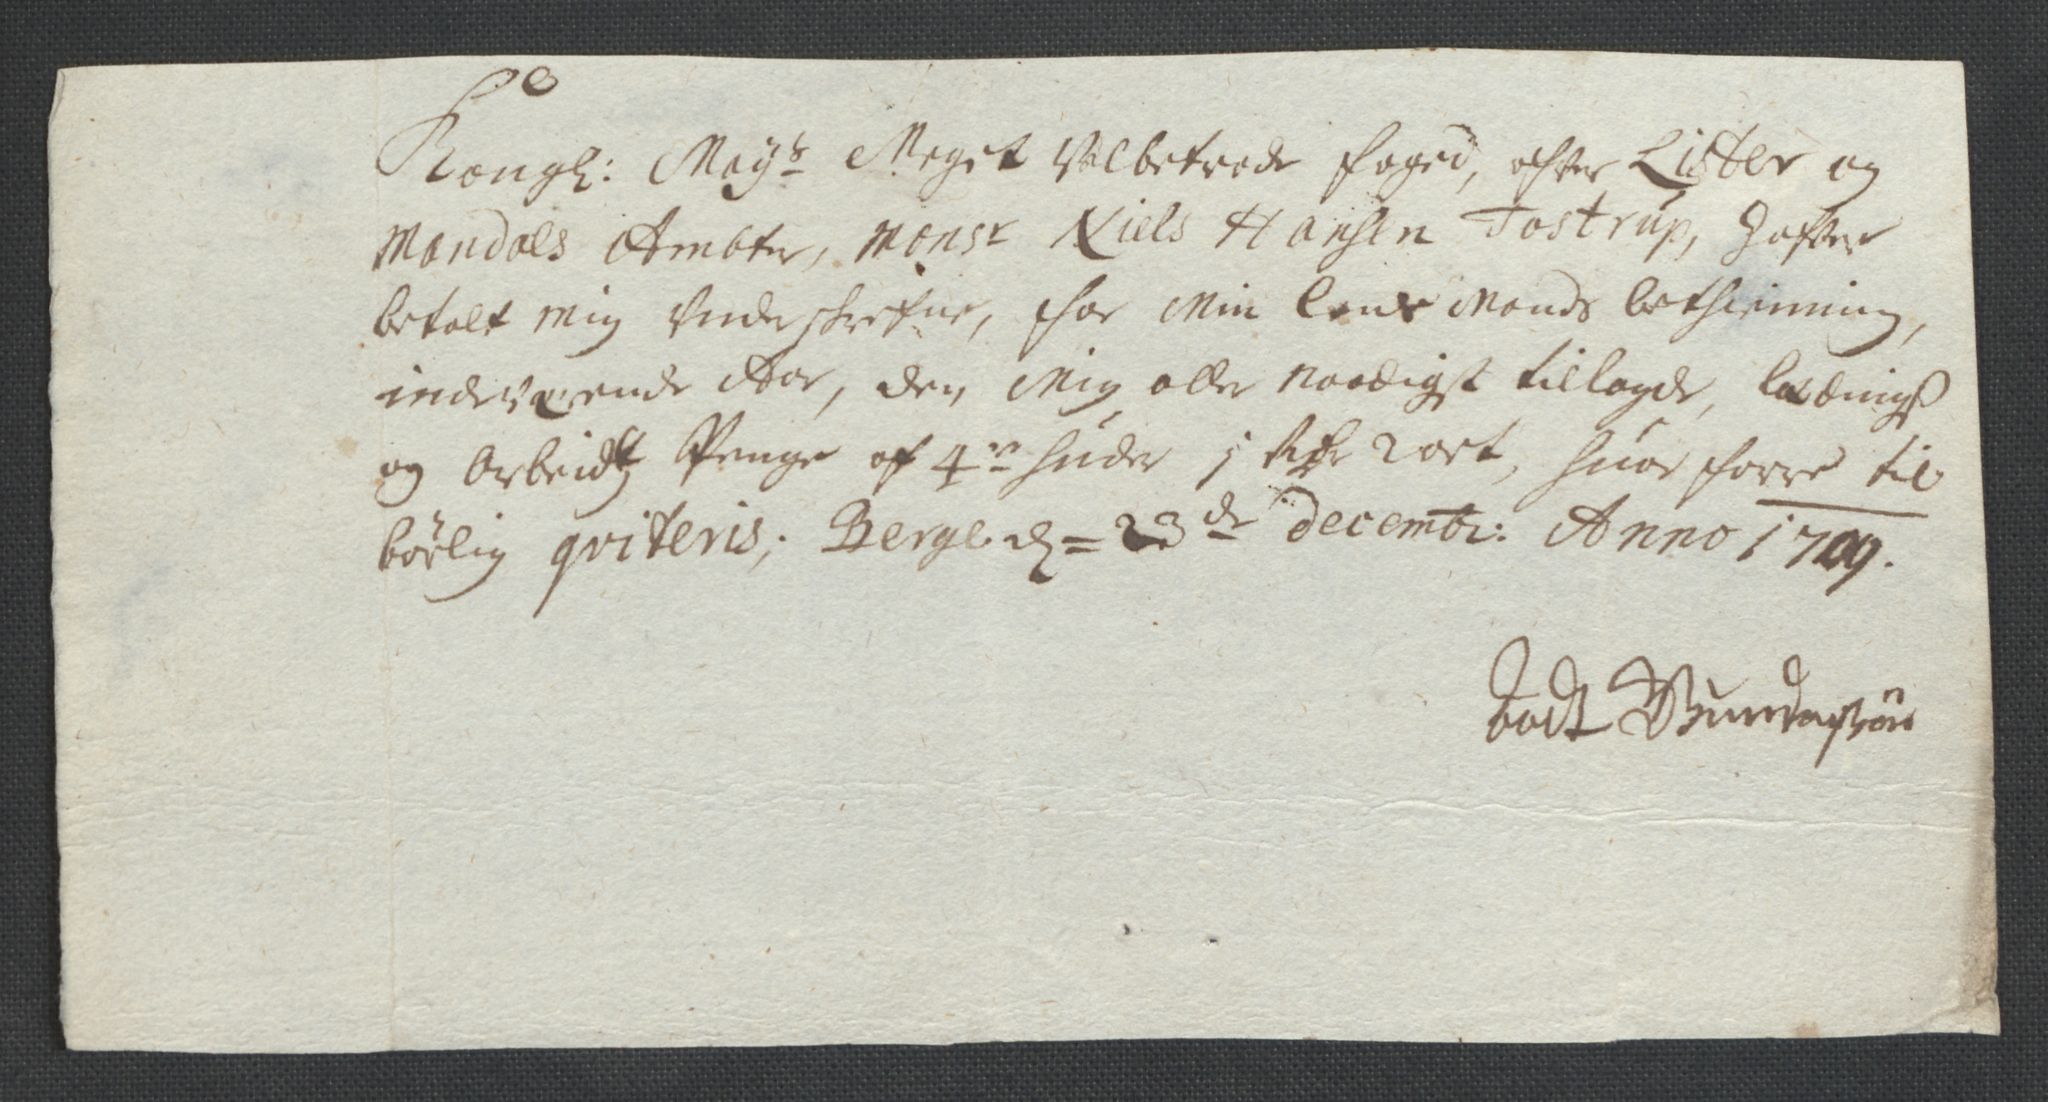 Kongl: Mayts Meget Velbetrode foged, ofver Lister og
Mandals Ambter, Monsr Niels Hansen Tostrup, Hafver
betalt mig Underschrefne, for Min Lends Mands bethienning,
indeværende Aar, den Mig aller naadigst tillagde, leedings
og Arbeidtz Penge af 4re huder 1 Rdr 2 ort, huor forre til
børlig qviteris; Berge d = 23de decembr: Anno 1709.
Todt Gundersøn